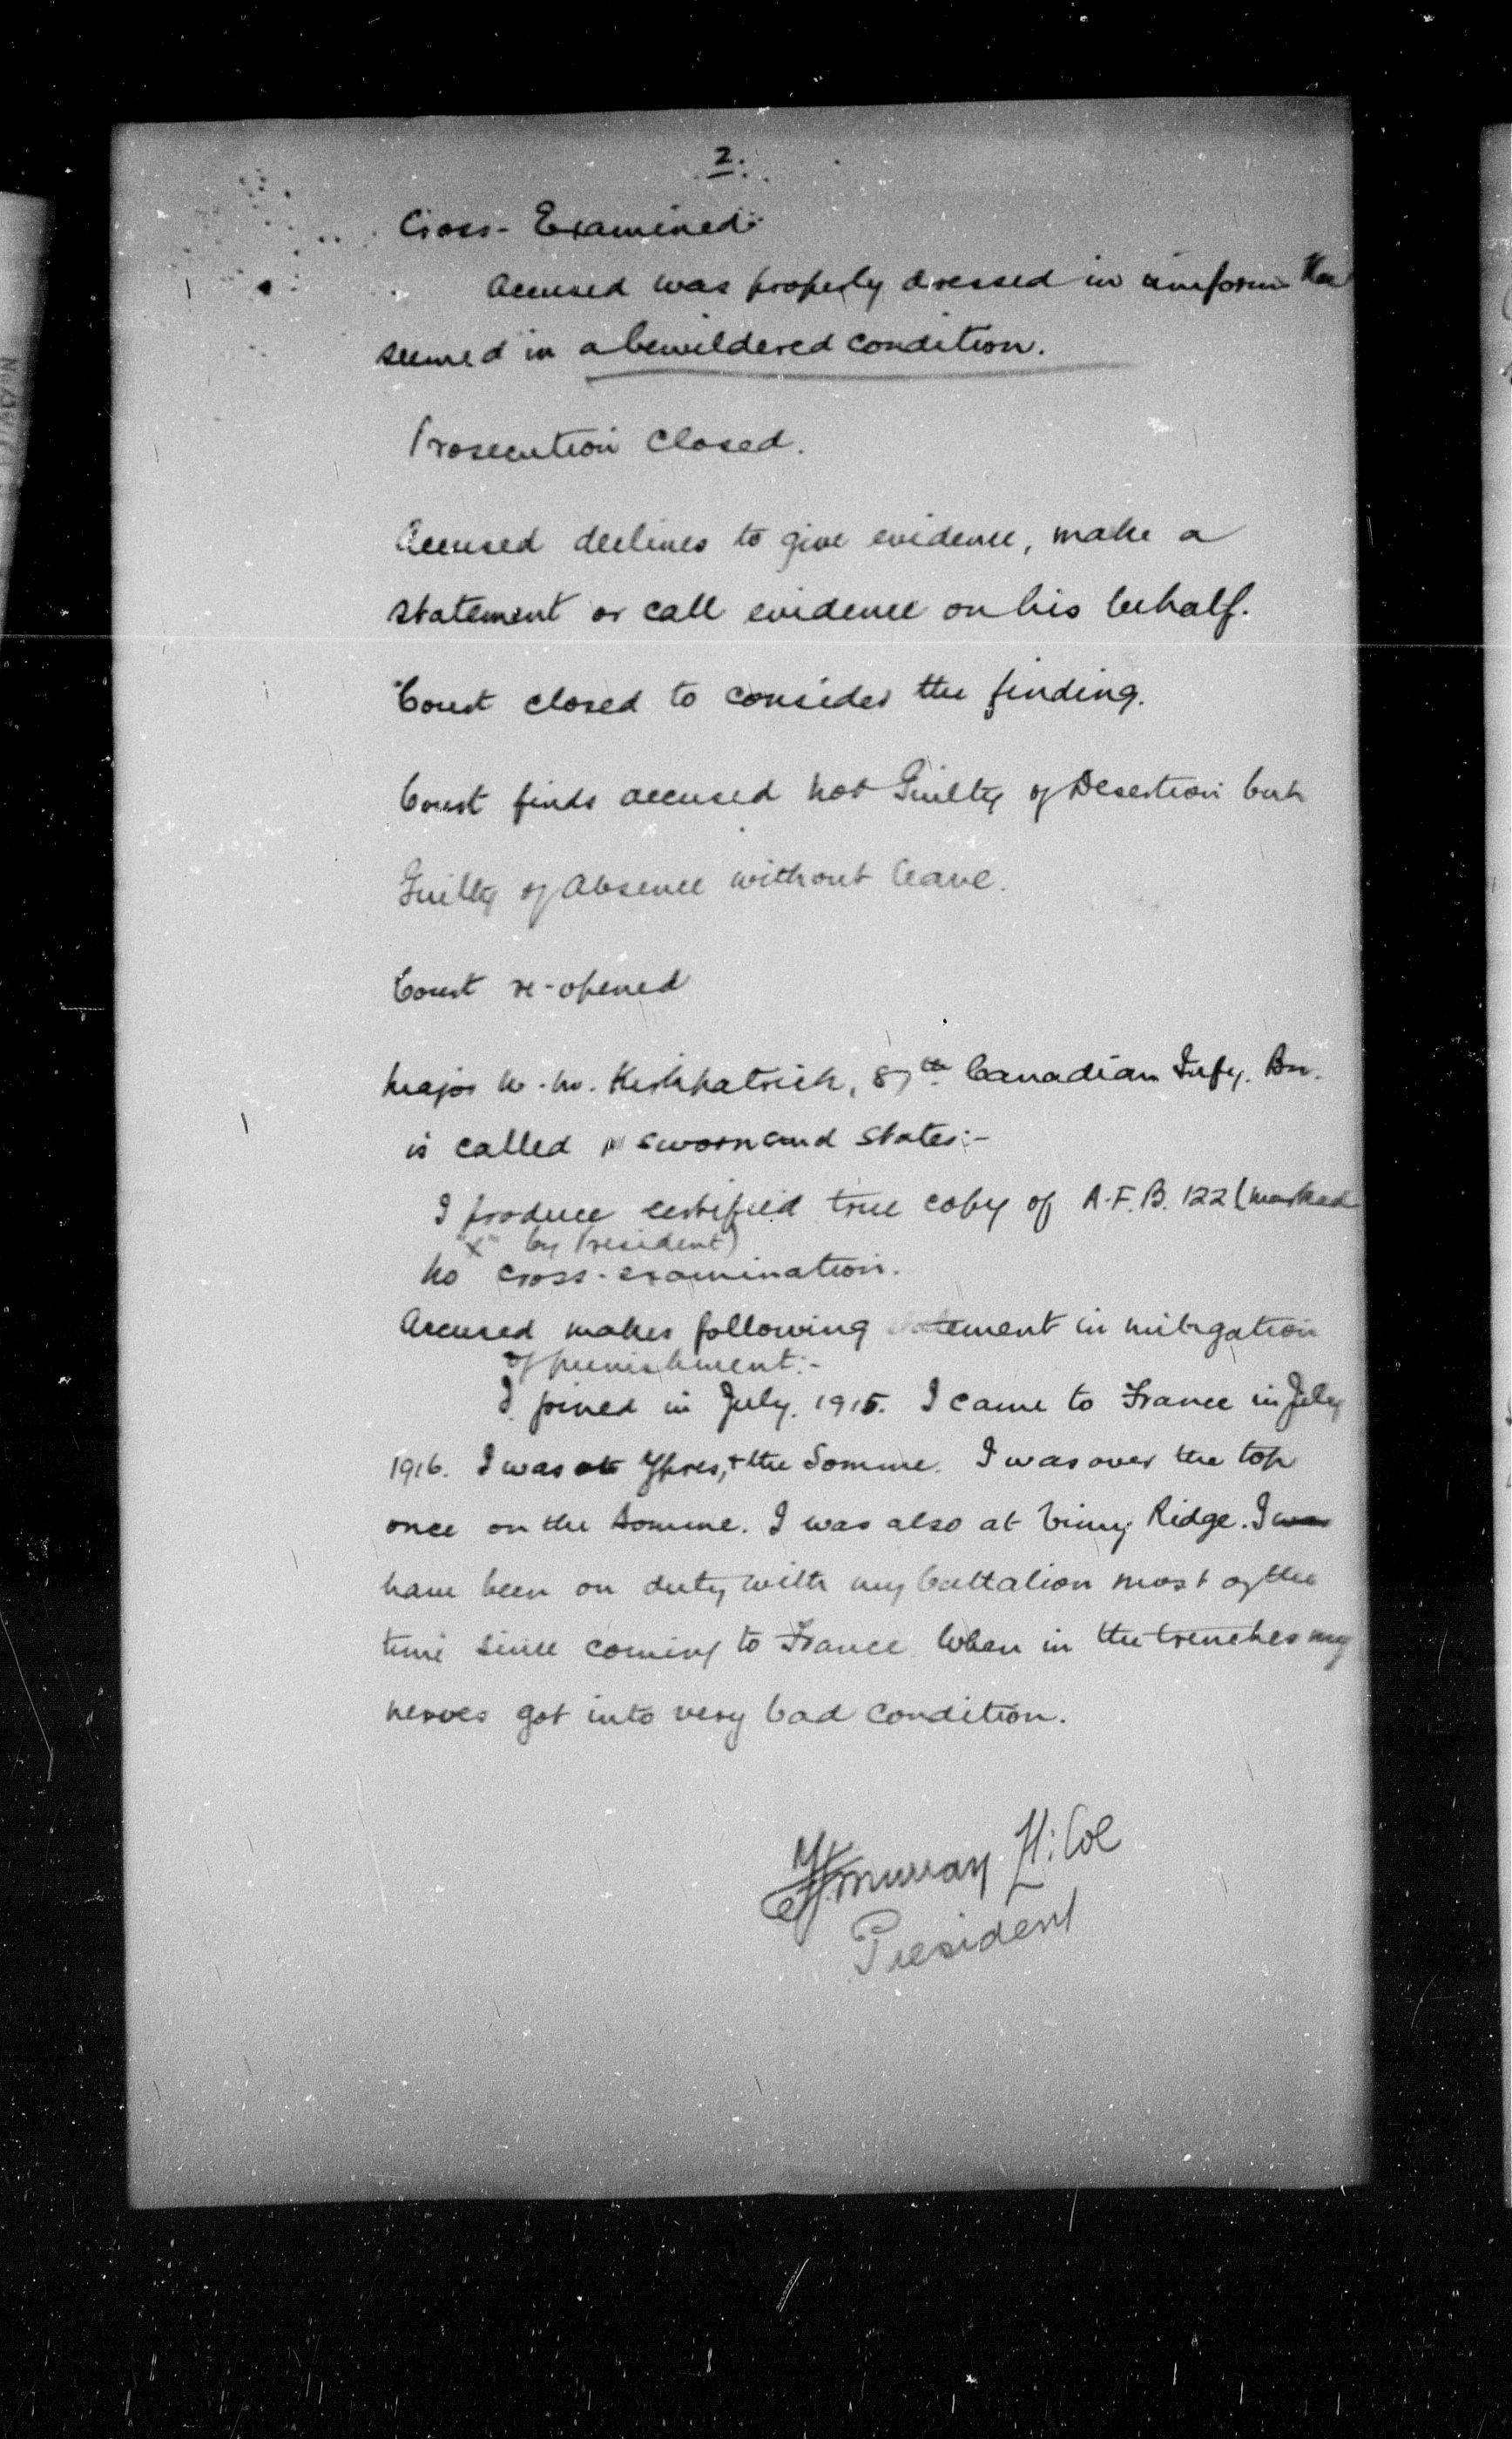 2.
Cross-Examined:
Accused was properly dressed in uniform He
seemed in a bewildered condition.
Prosecution closed.
Accused declines to give evidence, make a
statement or call evidence on his behalf.
Court closed to consider the finding.
Court finds accused not Guilty of Desertion but
Guilty of Absence without leave.
Court re-opened
Major W. W. Kirkpatrick, 87th Canadian Infy. Bn.
is called sworn and states:-
I produce certified true copy of A.F.B. 122 (marked
"X" by President)
No cross-examination.
Accused makes following statement in mitigation
of punishment:-
I joined in July. 1915. I came to France in July
1916. I was at Ypres, & the Somme. I was over the top
once on the Somme. I was also at Vimy Ridge. I was
have been on duty with my battalion most of the
time since coming to France. When in the trenches my
nerves got into very bad condition.
Murray Lt. Col
President